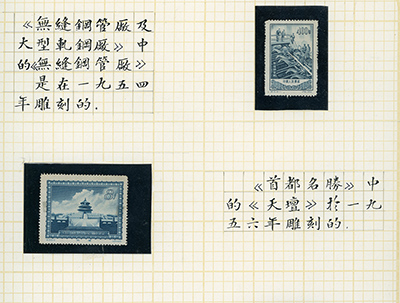 《無縫鋼管廠及
大型軋鋼廠》中
的《無縫鋼管廠》
是在一九五四
年雕刻的.
400
《首都名勝》中
的《天壇》於一九
五六年雕刻的.